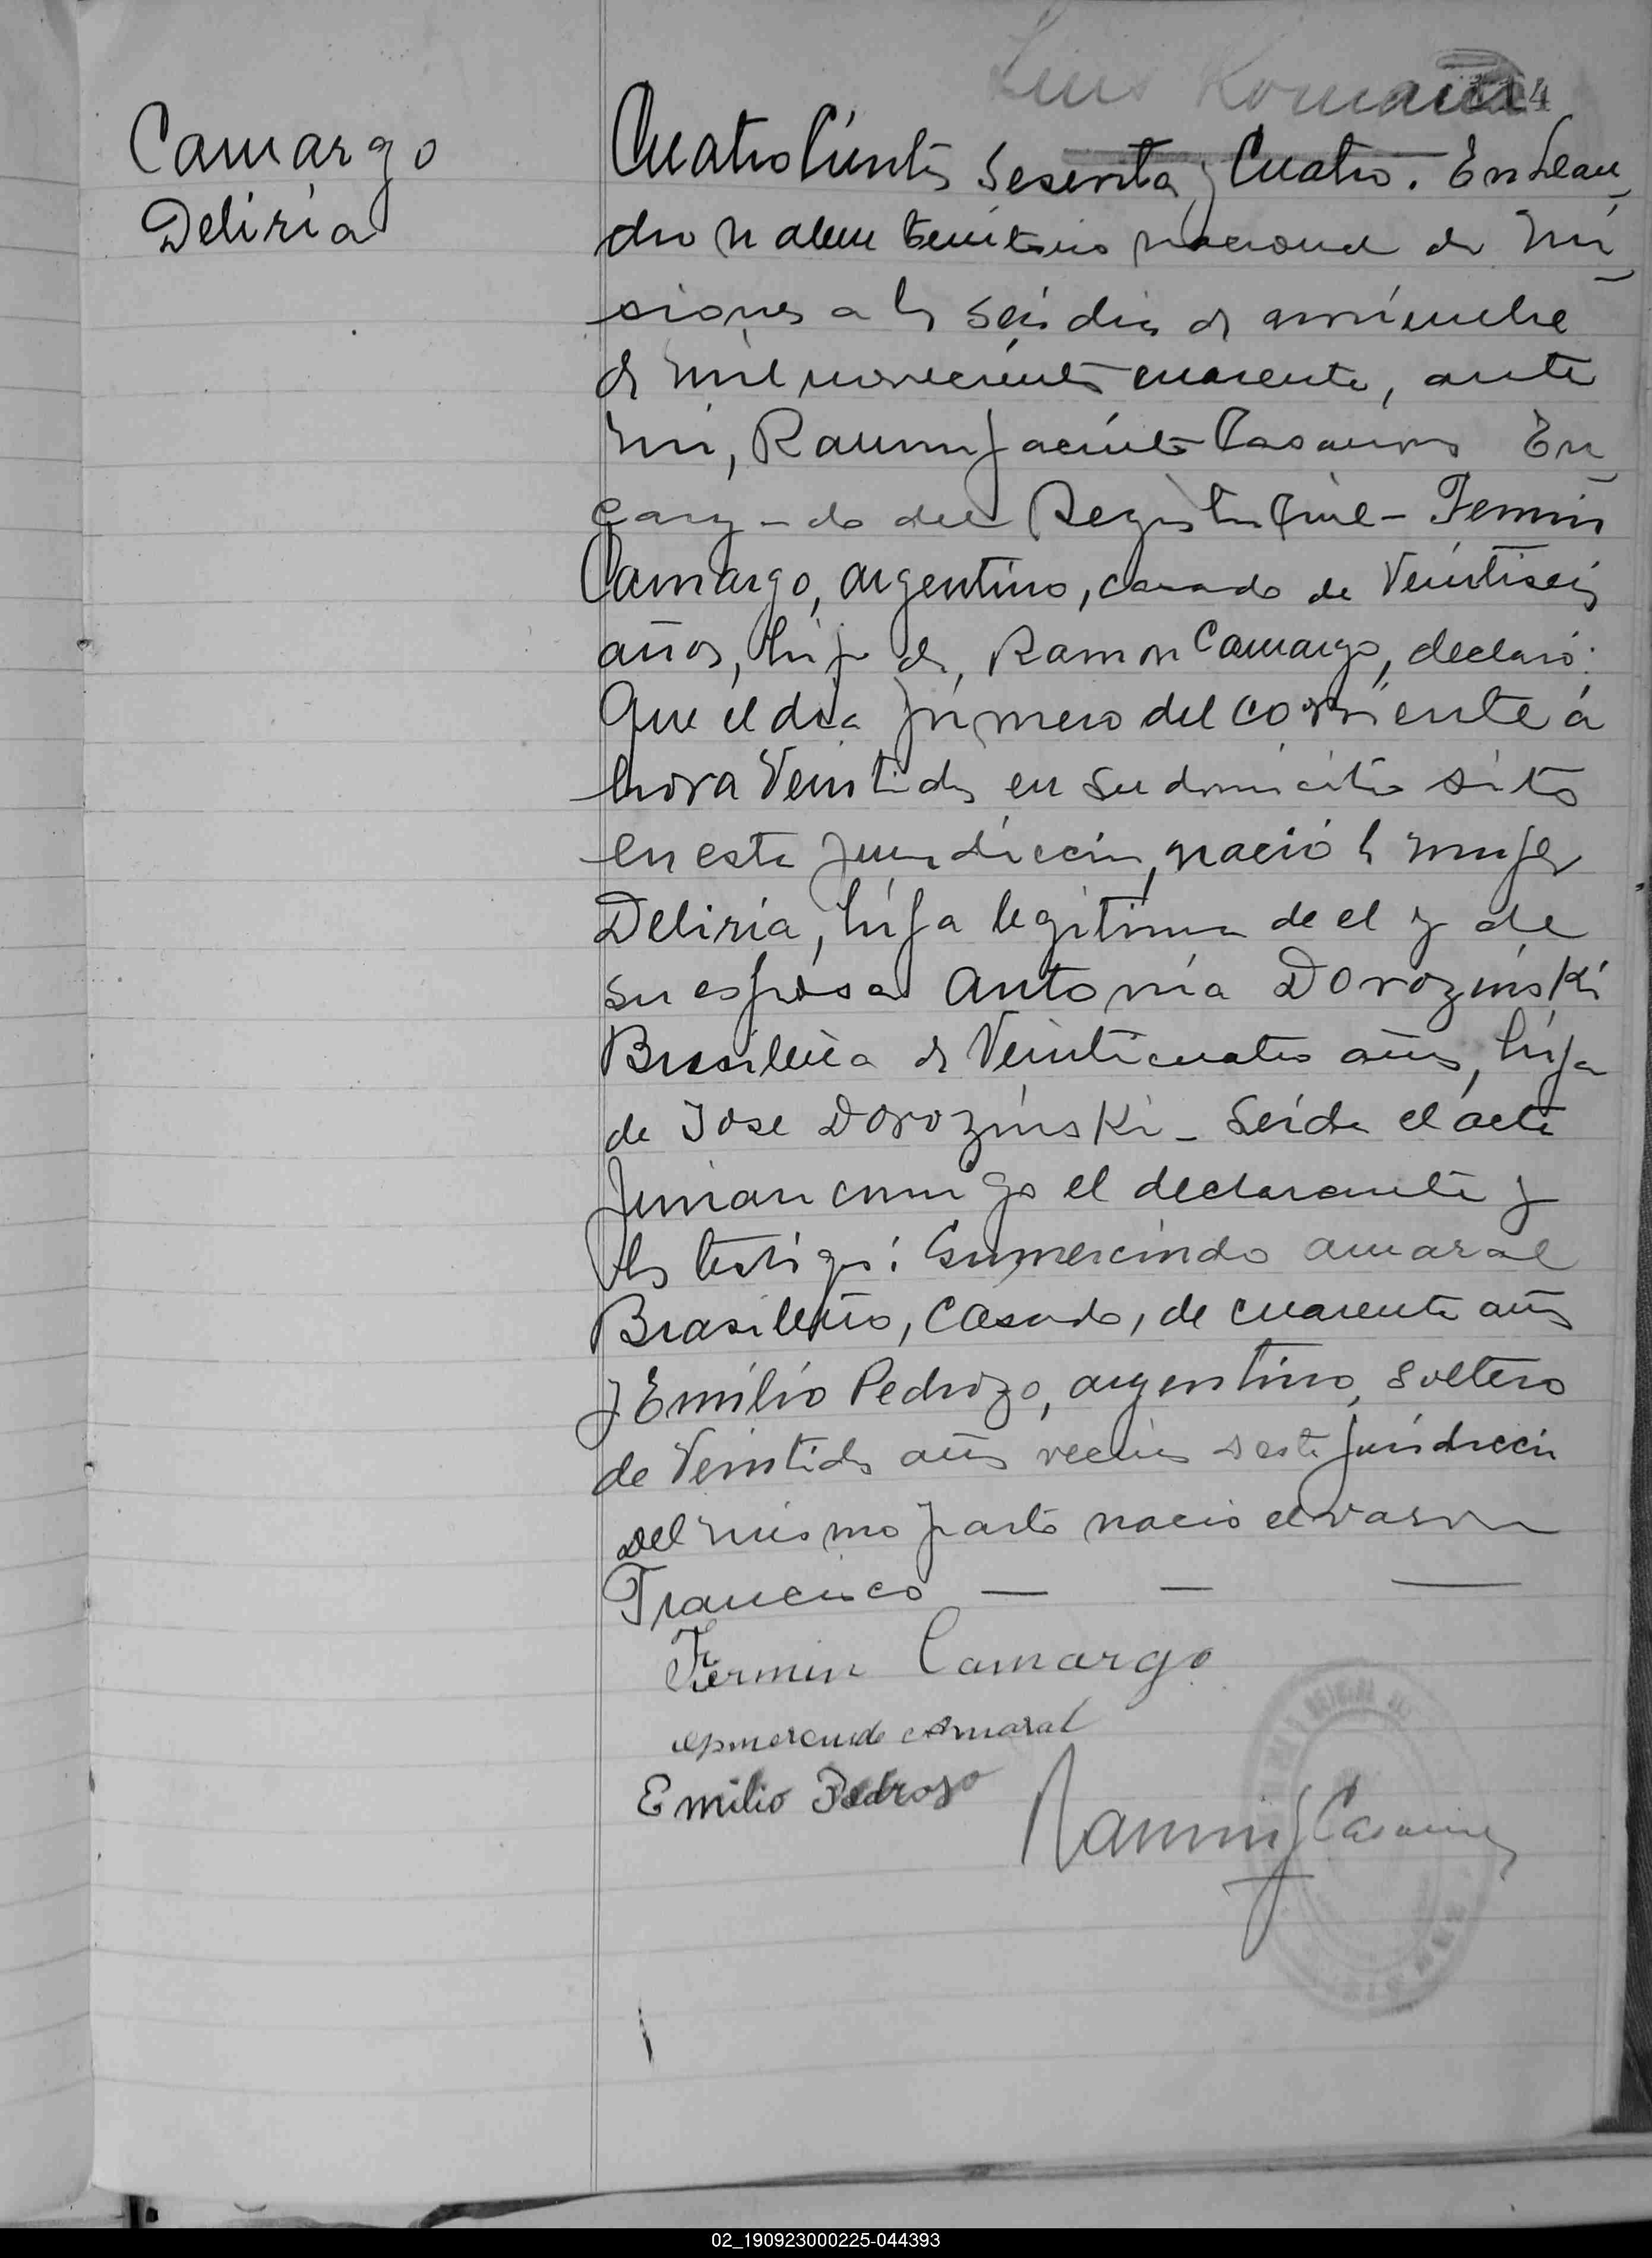 Luis Roman
4
Camargo
Deliria
Cuatrocientos Sesenta y Cuatro. En Lean
dro N alem territorio nacional de Mi
siones a los seis dias de noviembre
de mil novecientos cuarenta, ante
mi, Ramon Jacinto Casaures En
cargado del Registro Civil - Fermin
Camargo, argentino, casado de Veintiseis
años, hijo de, Ramon Camargo, declaró:
Que el dia primero del corriente á
hora Veintidos en su domicilio sito
en esta jurisdiccion, nació la mujer
Deliria, hija legitima de el y de
su esposa Antonia Dorozinski
Brasileña de Veinticuatro años, hija
de Jose Dorozinski - Leida el acta
firman conmigo el declarante y
los testigos: Gumercindo amaral
Brasileño, Casado, de cuarenta años
y Emilio Pedrozo, argentino, soltero
de Veintidos años vecinos de esta jurisdiccion
Del mismo parto nacio el varon
Francisco — — —
Fermin Camargo
Amaral
Emilio Pedrozo
Ramon J Casaures
02_190923000225-044393